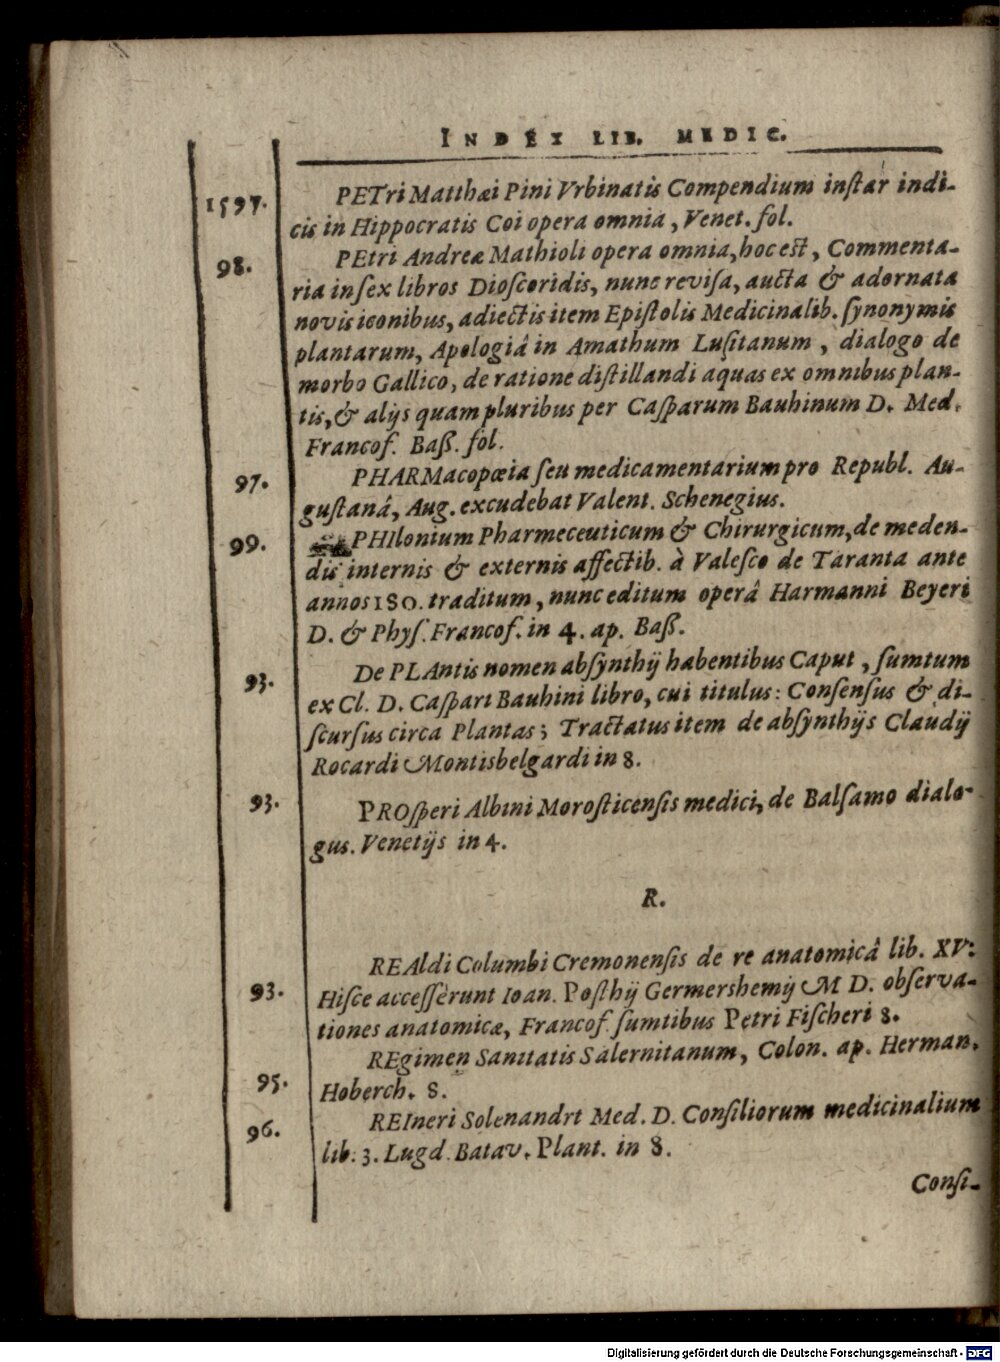 INDEX LIB. MEDIC.
1597. PETri Matthæi Pini Vrbinatis Compendium inſtar indi-
cis in Hippocratis Coi opera omnia, Venet. fol.
98. PEtri Andreæ Mathioli opera omnia, hoc est, Commenta-
ria in ſex libros Dioſcoridis, nunc reviſa, aucta & adornata
novis iconibus, adiectis item Epiſtolis Medicinalib. ſynonymis
plantarum, Apologiâ in Amathum Luſitanum, dialogo de
morbo Gallico, de ratione diſtillandi aquas ex omnibus plan-
tis, & alijs quampluribus per Caſparum Bauhinum D. Med.
Francof. Baß. fol.
97. PHARMacopœia ſeu medicamentarium pro Republ. Au-
guſtanâ, Aug. excudebat Valent. Schenegius.
99. PHIlonium Pharmeceuticum & Chirurgicum, de meden-
dis internis & externis affectib. à Valeſco de Taranta ante
annos 180. traditum, nunc editum operâ Harmanni Beyeri
D. & Phyſ. Francof. in 4. ap. Baß.
93. De PLAntis nomen abſynthij habentibus Caput, ſumtum
ex Cl. D. Caſpari Bauhini libro, cui titulus: Conſenſus & di-
ſcurſus circa Plantas; Tractatus item de abſynthijs Claudij
Rocardi Montisbelgardi in 8.
93. PROſperi Albini Moroſticenſis medici, de Balſamo dialo-
gus. Venetijs in 4.
R.
REAldi Columbi Cremonenſis de re anatomicâ lib. XV:
93. Hiſce acceſſerunt Ioan. Poſthij Germershemij M D. obſerva-
tiones anatomicæ, Francof. ſumtibus Petri Fiſcheri 8.
REgimen Sanitatis Salernitanum, Colon. ap. Herman.
95. Hoberch. 8.
96. REIneri Solenandrt Med. D. Conſiliorum medicinalium
lib. 3. Lugd. Batav. Plant. in 8.
Conſi-
Digitalisierung gefördert durch die Deutsche Forschungsgemeinschaft - DFG